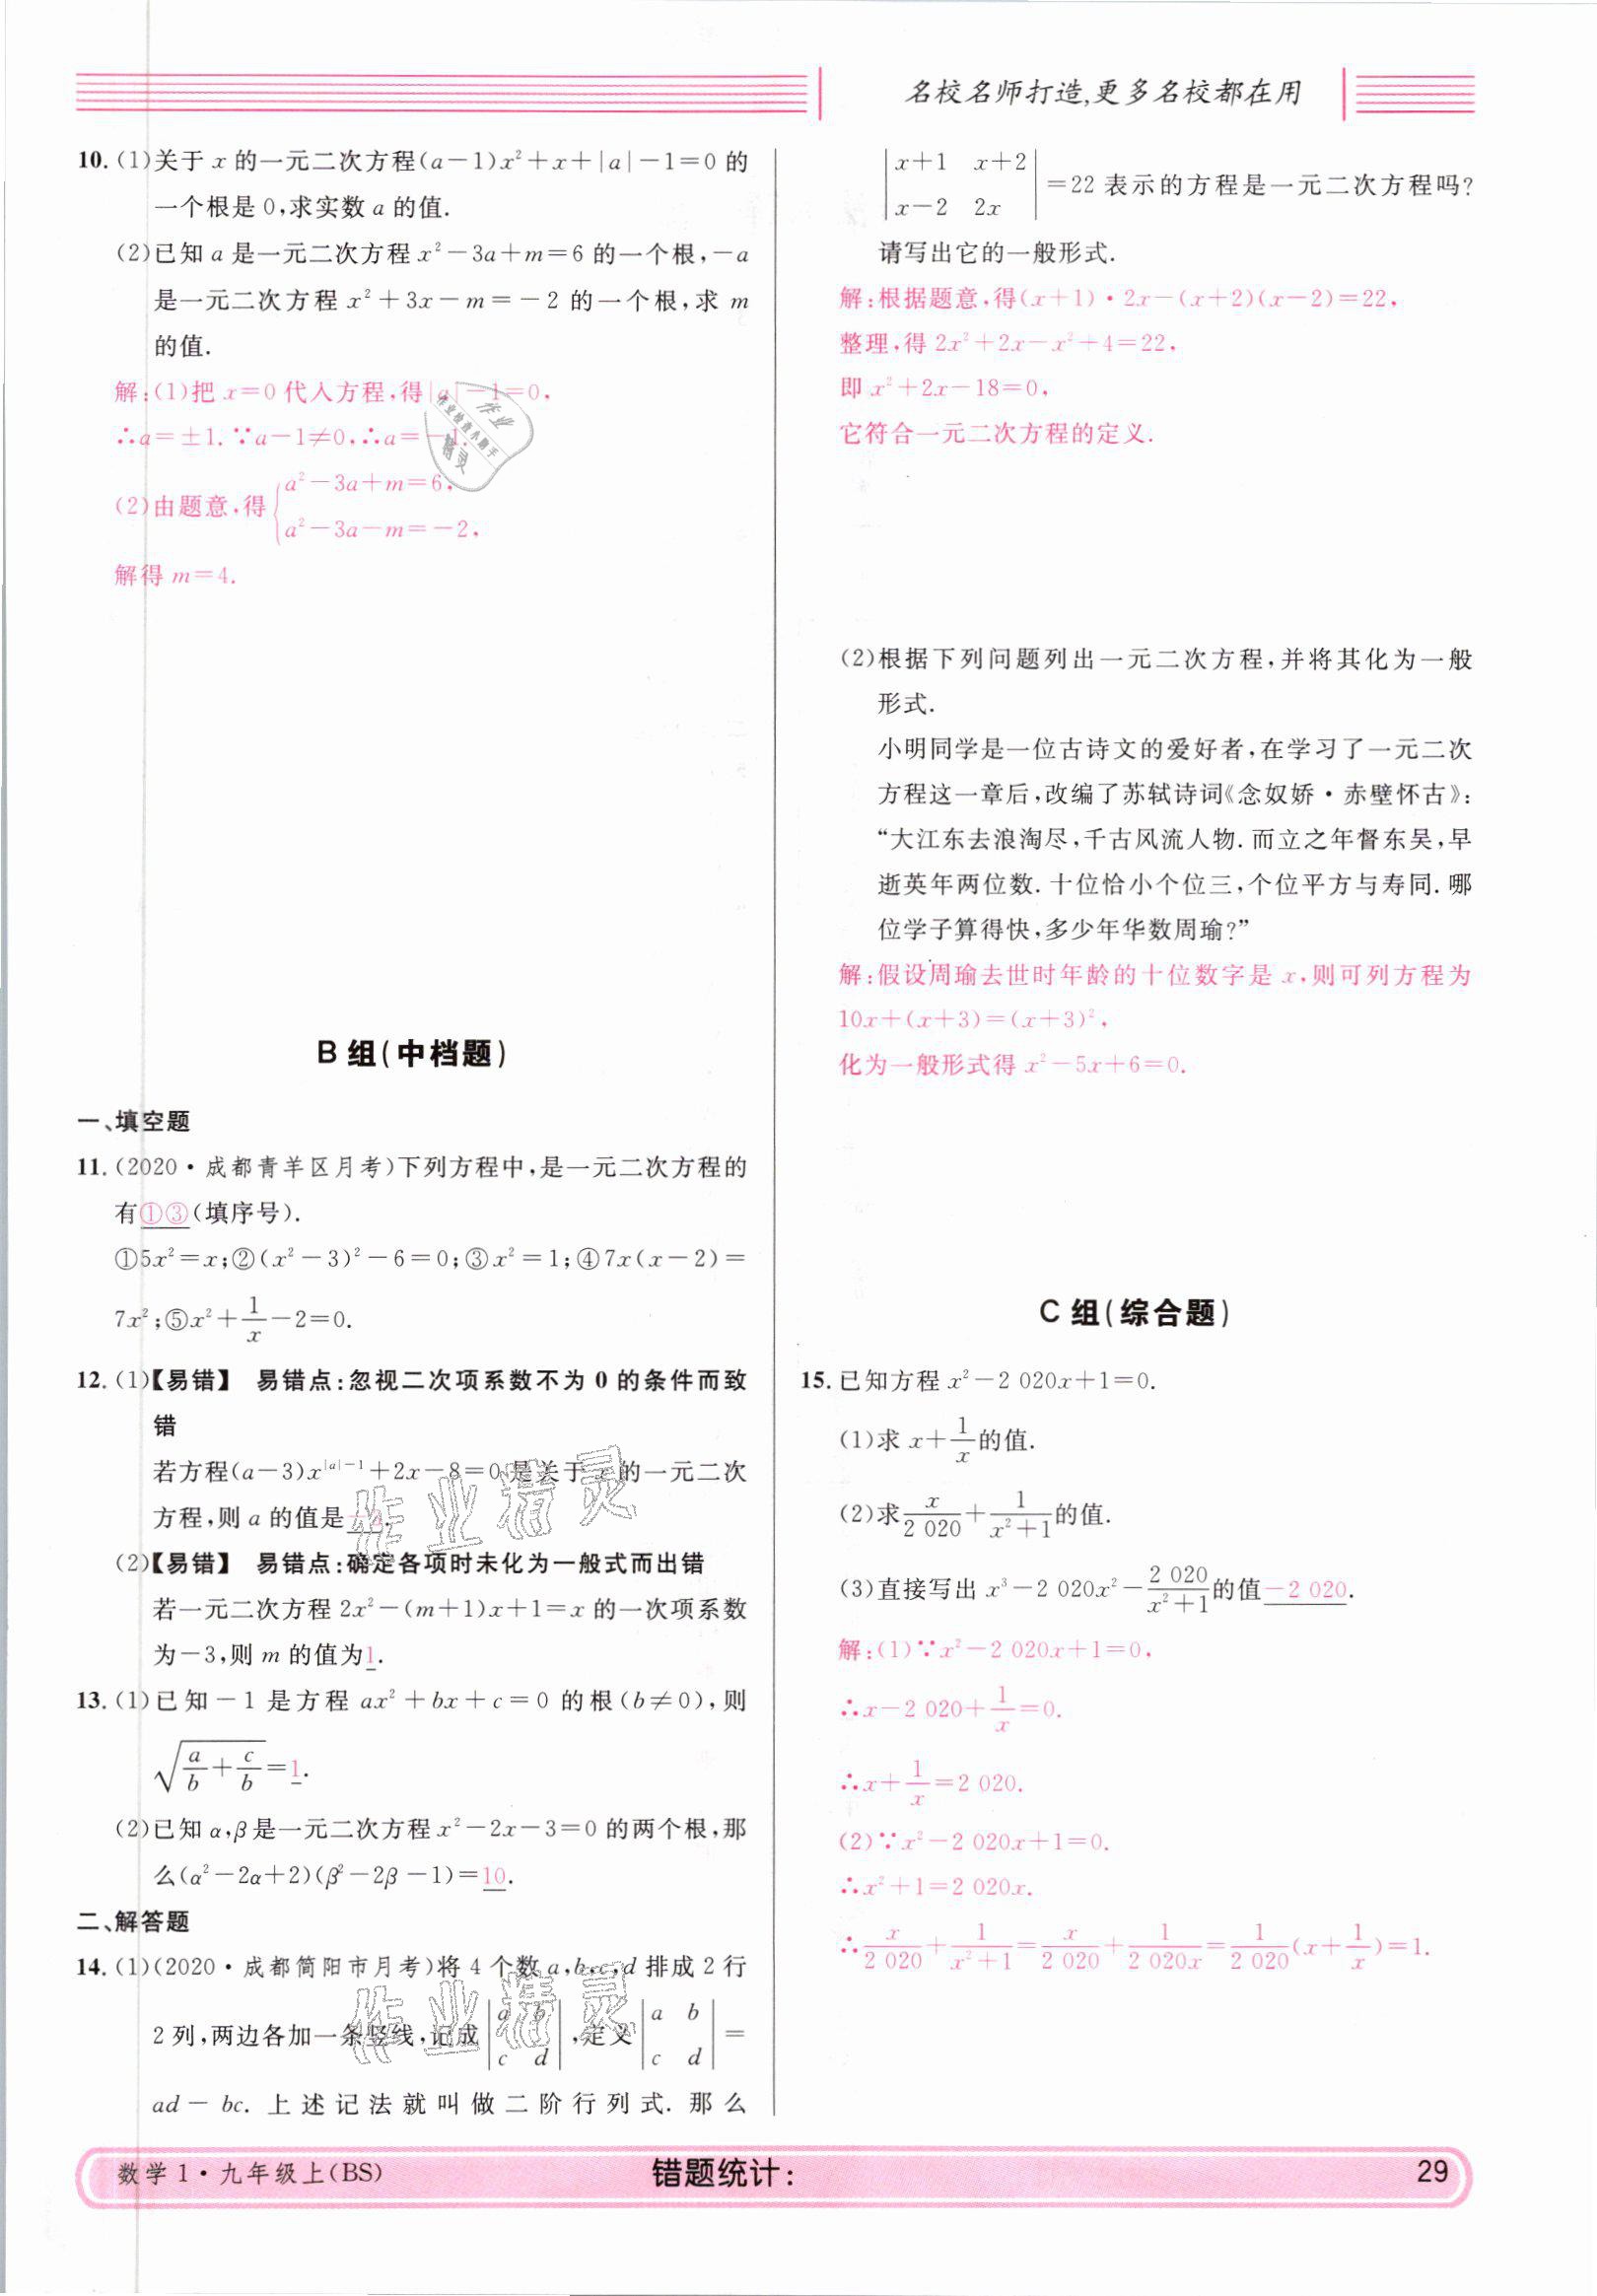 名校名师打造,更多名校都在用
10.(1)关于 x 的一元二次方程(a-1)x²+x+|a|-1=0 的
一个根是 0,求实数 a 的值.
(2)已知 a 是一元二次方程 x²-3a+m=6 的一个根,-a
是一元二次方程 x²+3x-m=-2 的一个根,求 m
的值.
解:(1)把 x=0 代入方程,得|a|-1=0,
∴a=±1.∵a-1≠0,∴a=-1.
(2)由题意,得 { a²-3a+m=6,
a²-3a-m=-2,
解得 m=4.
B 组(中档题)
一、填空题
11.(2020·成都青羊区月考)下列方程中,是一元二次方程的
有①③(填序号).
①5x²=x;②(x²-3)²-6=0;③x²=1;④7x(x-2)=
7x²;⑤x²+1/x-2=0.
12.(1)【易错】 易错点:忽视二次项系数不为 0 的条件而致
错
若方程(a-3)x^(|a|-1)+2x-8=0 是关于 x 的一元二次
方程,则 a 的值是
(2)【易错】 易错点:确定各项时未化为一般式而出错
若一元二次方程 2x²-(m+1)x+1=x 的一次项系数
为-3,则 m 的值为1.
13.(1)已知-1 是方程 ax²+bx+c=0 的根(b≠0),则
√(a/b+c/b)=1.
(2)已知 α,β是一元二次方程 x²-2x-3=0 的两个根,那
么(α²-2α+2)(β²-2β-1)=10.
二、解答题
14.(1)(2020·成都简阳市月考)将 4 个数 a,b,c,d 排成 2 行
2 列,两边各加一条竖线,记成|a b|,定义|a b|=
|c d| |c d|
ad-bc. 上述记法就叫做二阶行列式. 那么
|x+1 x+2|=22 表示的方程是一元二次方程吗?
|x-2 2x|
请写出它的一般形式.
解:根据题意,得(x+1)·2x-(x+2)(x-2)=22,
整理,得 2x²+2x-x²+4=22,
即 x²+2x-18=0,
它符合一元二次方程的定义.
(2)根据下列问题列出一元二次方程,并将其化为一般
形式.
小明同学是一位古诗文的爱好者,在学习了一元二次
方程这一章后,改编了苏轼诗词《念奴娇·赤壁怀古》:
“大江东去浪淘尽,千古风流人物.而立之年督东吴,早
逝英年两位数.十位恰小个位三,个位平方与寿同.哪
位学子算得快,多少年华数周瑜?”
解:假设周瑜去世时年龄的十位数字是 x,则可列方程为
10x+(x+3)=(x+3)²,
化为一般形式得 x²-5x+6=0.
C 组(综合题)
15.已知方程 x²-2 020x+1=0.
(1)求 x+1/x的值.
(2)求x/2 020+1/(x²+1)的值.
(3)直接写出 x³-2 020x²-2 020/(x²+1)的值-2 020.
解:(1)∵x²-2 020x+1=0,
∴x-2 020+1/x=0.
∴x+1/x=2 020.
(2)∵x²-2 020x+1=0.
∴x²+1=2 020x.
∴x/2 020+1/(x²+1)=x/2 020+1/2 020x=1/2 020(x+1/x)=1.
数学 1·九年级上(BS)
错题统计:
29
作业检查小助手
作业
精灵
作业精灵
作业精灵